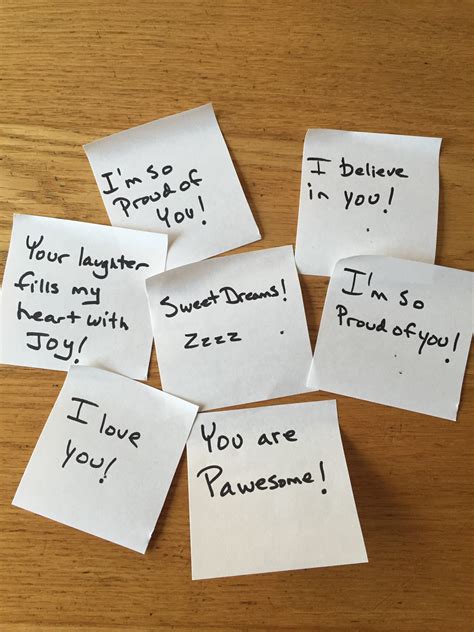 I'm so
Proud of
You!
I believe
in you!
Your laughter
fills my
heart with
Joy!
Sweet Dreams!
Zzzz
I'm so
Proud of you!
I love
you!
You are
Pawesome!